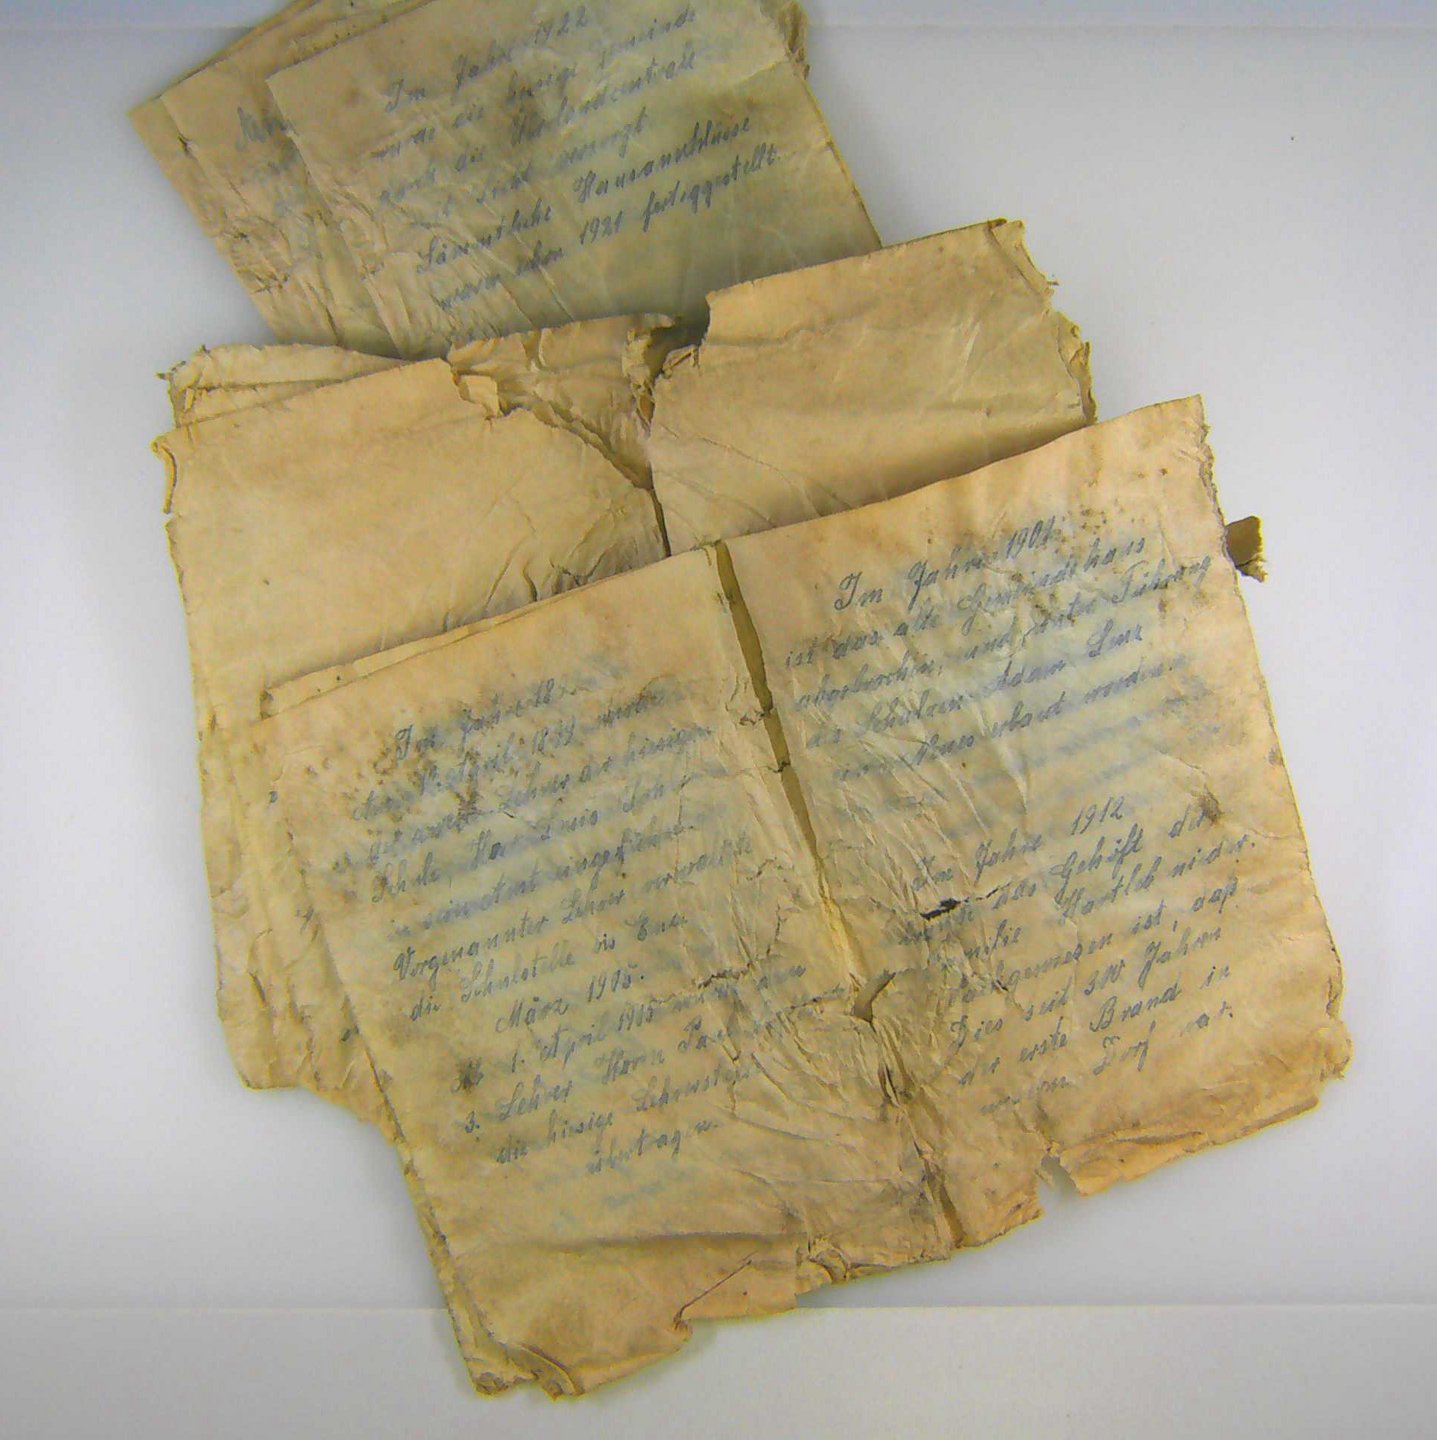 Im Jahre 1922
wurde die hiesige Gemeinde
durch die Überlandcentrale
mit Licht versorgt.
Sämmtliche Hausanschlüsse
waren schon 1921 festggestellt.
Im Jahre 18
Am 19. April 1879 wurde
der zweite Lehrer an hiesigen
Schule, Herr Louis
in sein Amt eingeführt.
Vorgenannter Lehrer verwaltete
die Schulstelle bis Ende
März 1915.
Ab 1. April 1915 wurde dem
3. Lehrer Herrn
die hiesige Lehrerstelle
übertragen.
Im Jahre 1901
ist das alte Gemeindehaus
abgebrochen, und unter Führung
des Schulzen Adam
ein Neues erbaut worden.
Im Jahre 1912
brante das Gehöft der
Familie Hartleb nieder.
Nachgewiesen ist, daß
Dies seit 300 Jahren
der erste Brand in
unserm Dorf war.